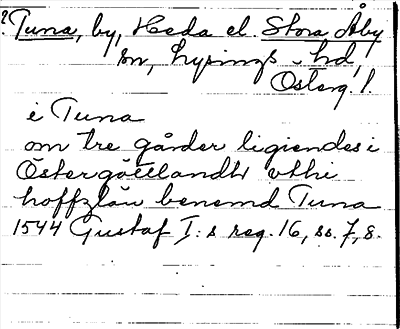 ? Tuna, by, Heda el. Stora Åby
sn, Lysings hd,
Österg. l.
i Tuna
om tre gårder ligiendes i
Östergöttlandh vthi
hoffzlän benemd Tuna
1544 Gustaf I:s reg. 16, ss. 7, 8.